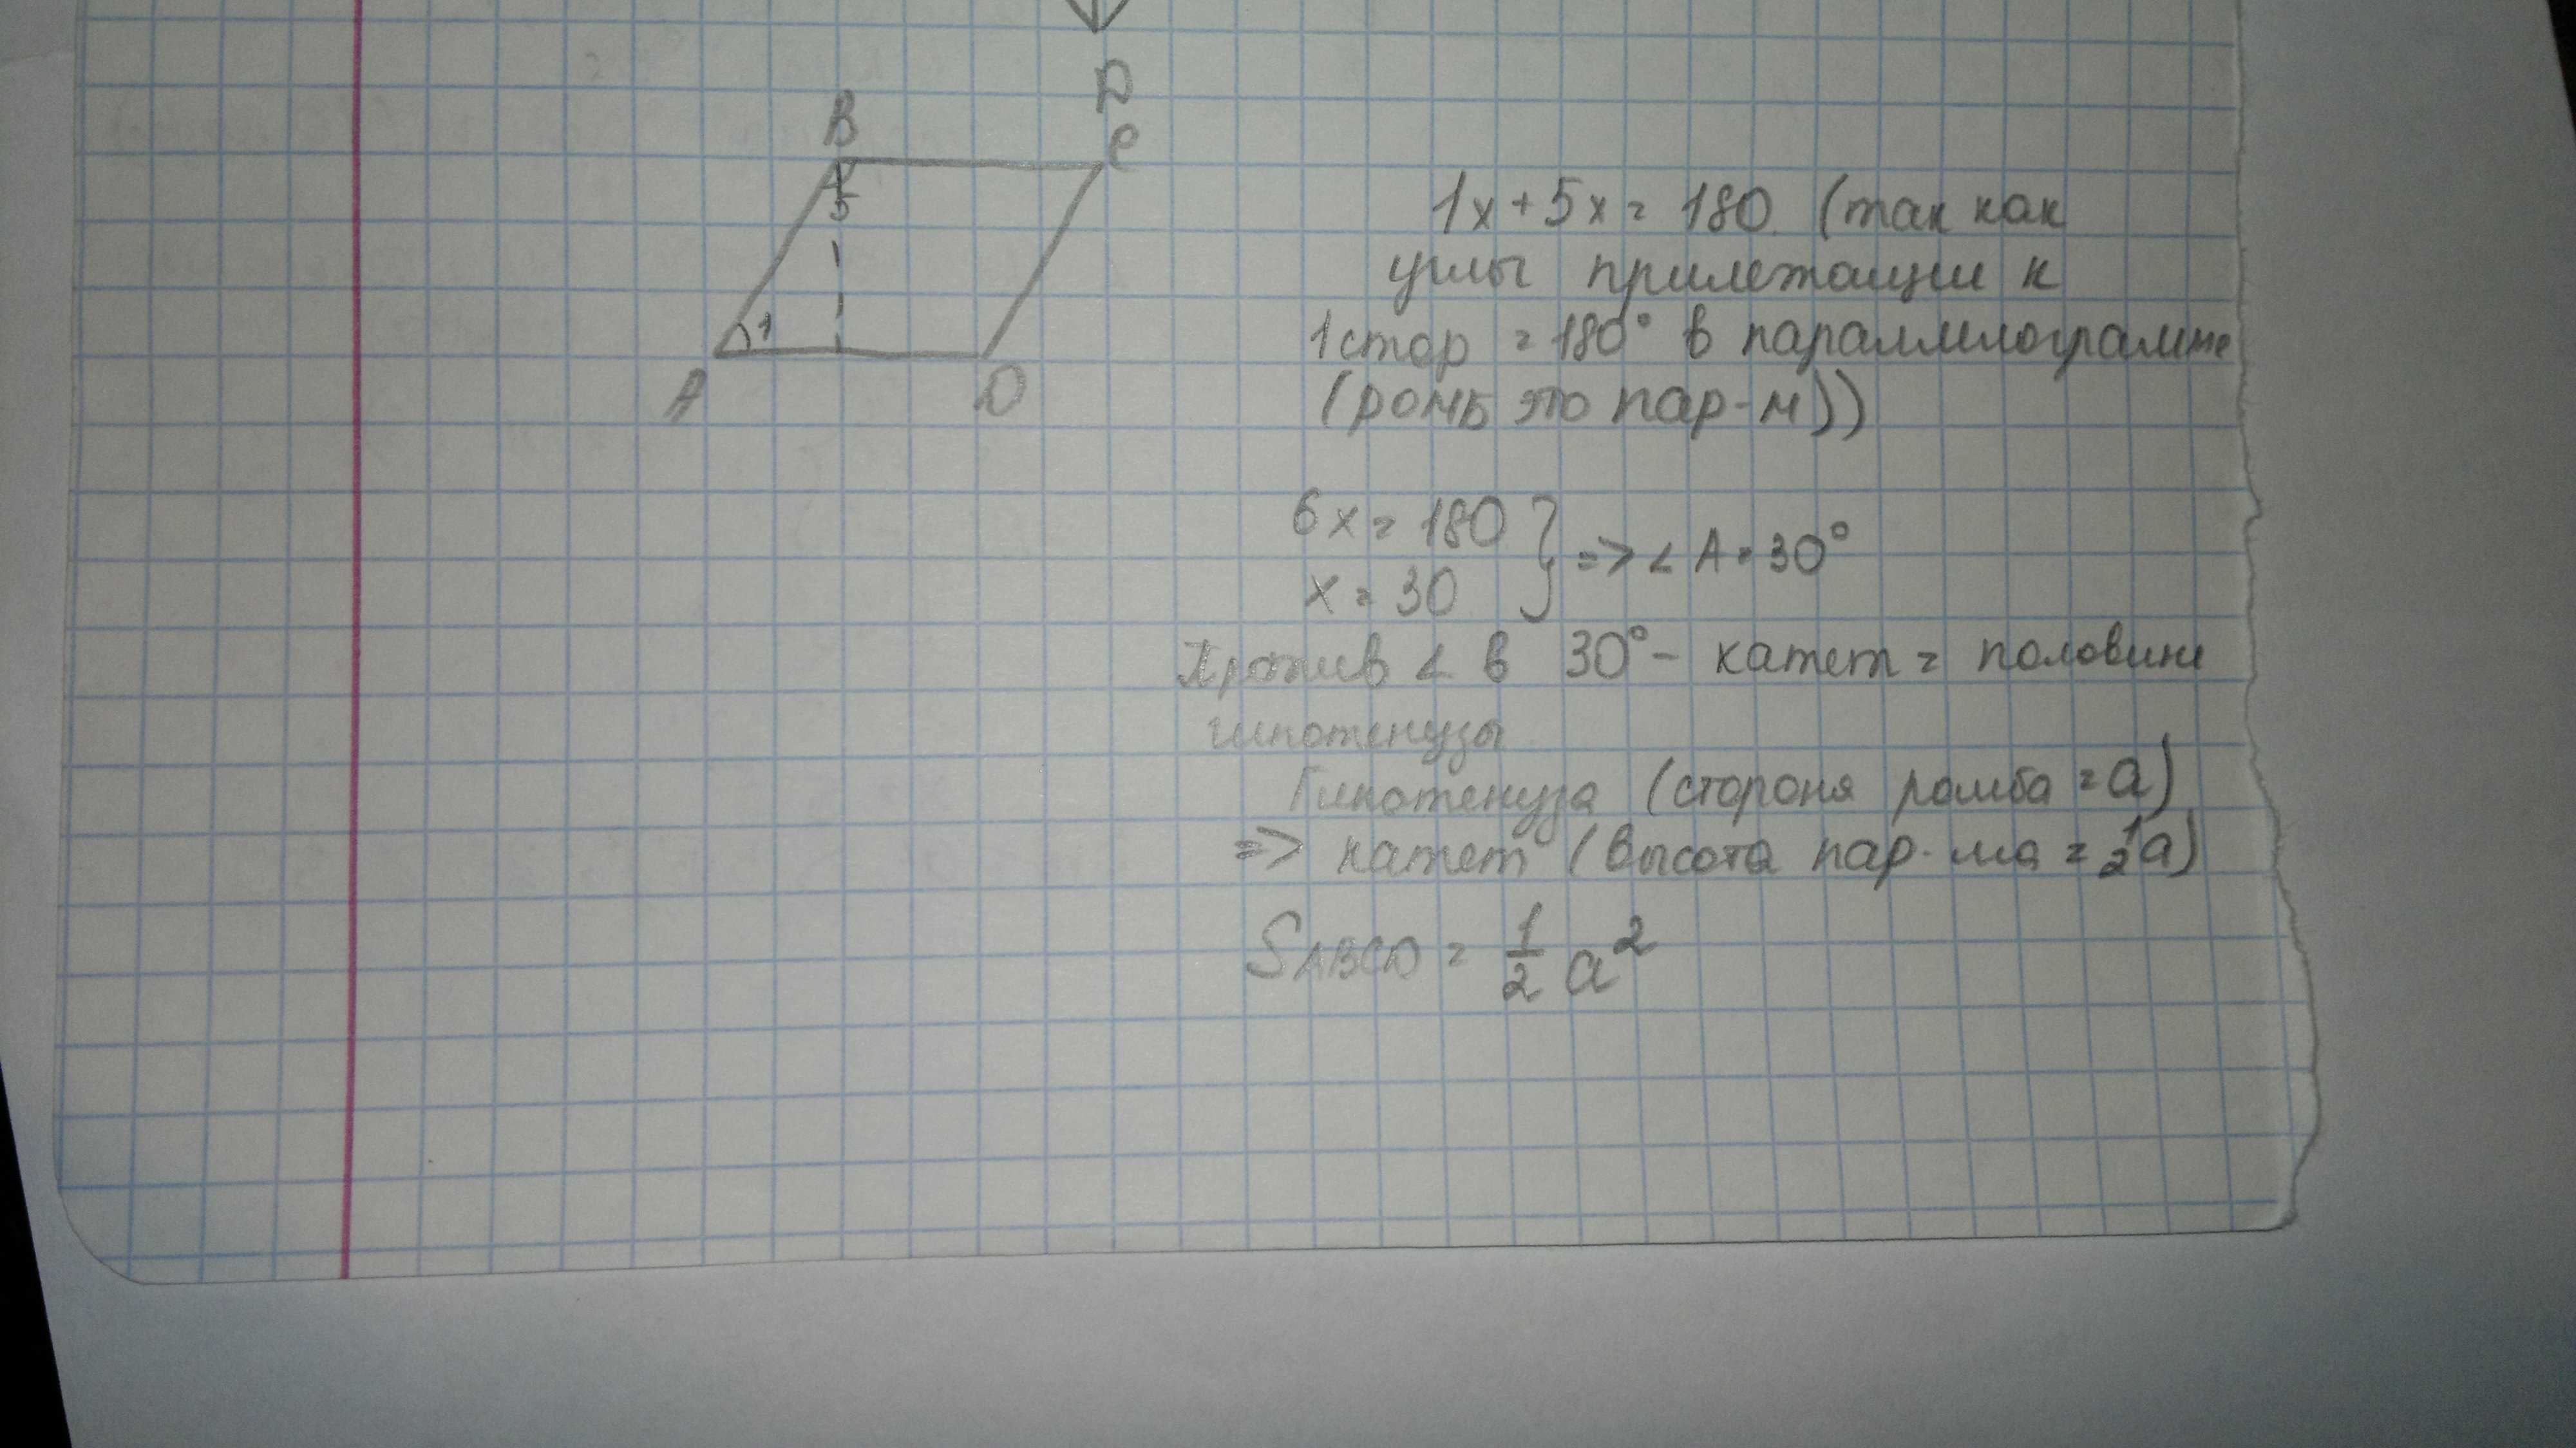 D
B
C
5
1
A
D
1x+5x=180 (так как
углы прилежащие к
1 стор = 180° в параллелограмме
(ромб это пар-м))
6x=180
x=30
=> < A = 30°
Против < в 30° - катет = половине
гипотенузы
Гипотенуза (стороня ромба = a)
=> катет (высота пар-ма = 1/2 a)
SABCD = 1/2 a²